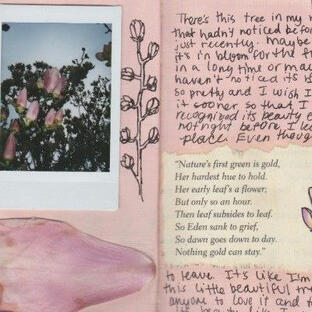 There's this tree in my n
that hadn't noticed befor
just recently. Maybe
it's in bloom for the f
in a long time or ma
haven't noticed its b
so pretty and I wish I
it sooner so that I
recognized its beauty e
not right before I lea
place. Even though
"Nature's first green is gold,
Her hardest hue to hold.
Her early leaf's a flower;
But only so an hour.
Then leaf subsides to leaf.
So Eden sank to grief,
So dawn goes down to day.
Nothing gold can stay."
to leave. It's like I'm
this little beautiful tre
anyone to love it and t